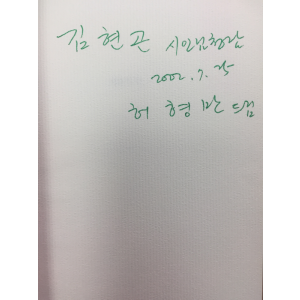 김현곤 시인님 청람
2002. 7. 25
허형만 드림